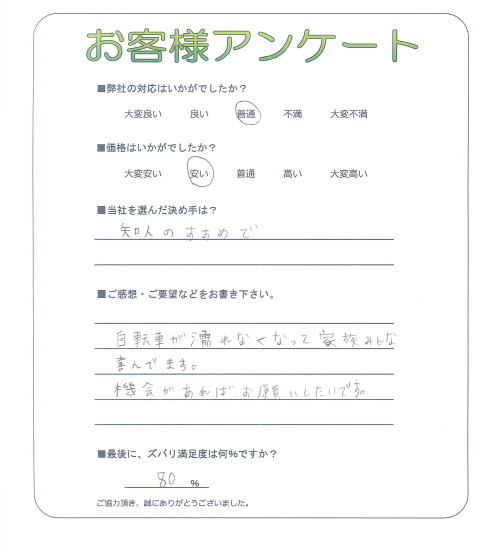 お客様アンケート
■弊社の対応はいかがでしたか？
大変良い 良い 普通 不満 大変不満
■価格はいかがでしたか？
大変安い 安い 普通 高い 大変高い
■当社を選んだ決め手は？
知人のすすめで
■ご感想・ご要望などをお書き下さい。
自転車が濡れなくなって家族みんな
喜んでます。
機会があればお願いしたいです。
■最後に、ズバリ満足度は何%ですか？
80 %
ご協力頂き、誠にありがとうございました。